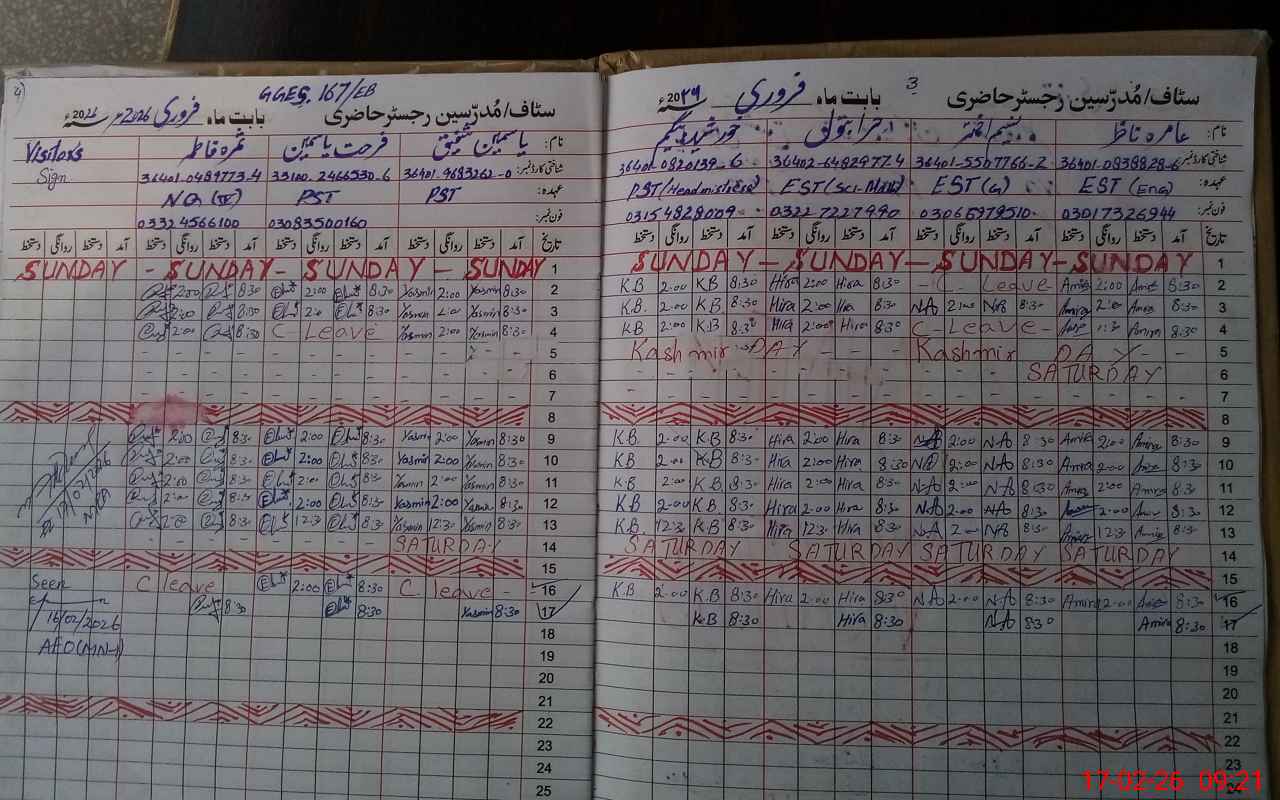 4) GGES. 167/EB
سٹاف/مُدرّسین رجسٹر حاضری بابت ماہ فروری 2026 سنہ 2026ء
نام: یاسمین شفیق فرحت یاسمین ثمرہ فاطمہ Visitors
شناختی کارڈ نمبر: 36401-9683262-0 33100-2466530-6 36401-0489773-4 Sign
عہدہ: PST PST NQ (IV)
فون نمبر: 03083500160 03324566100
تاریخ آمد دستخط روانگی دستخط آمد دستخط روانگی دستخط آمد دستخط روانگی دستخط آمد دستخط روانگی دستخط
SUNDAY - SUNDAY - SUNDAY - SUNDAY 1
2:00 8:30 2:00 8:30 Yasmin 2:00 Yasmin 8:30 2
2:00 8:00 8:30 Yasmin 2:00 Yasmin 8:30 3
2:00 8:30 C Leave Yasmin 2:00 Yasmin 8:30 4
5
6
7
8
2:00 8:30 2:00 8:30 Yasmin 2:00 Yasmin 8:30 9
2:00 8:30 2:00 8:30 Yasmin 2:00 Yasmin 8:30 10
2:00 8:30 2:00 8:30 Yasmin 2:00 Yasmin 8:30 11
2:00 8:30 2:00 8:30 Yasmin 2:00 Yasmin 8:30 12
8:30 12:3 8:30 Yasmin 12:30 Yasmin 8:30 13
SATURDAY 14
15
Seen C leave 2:00 8:30 C leave - 16
8:30 8:30 Yasmin 8:30 17
16/02/2026 18
AEO (MN-1) 19
20
21
22
23
24
25
3
سٹاف/مُدرّسین رجسٹر حاضری بابت ماہ فروری 2026ء
نام: عامرہ ناظر نسیم اختر خورشید بیگم
شناختی کارڈ نمبر: 36401-0838828-6 36401-5507766-2 36402-6482977-4 36401-0820139-6
عہدہ: EST (Eng) EST (G) EST (Sci-Math) PST (Headmistress)
فون نمبر: 03017326944 03065979510 03227227990 03154828009
تاریخ آمد دستخط روانگی دستخط آمد دستخط روانگی دستخط آمد دستخط روانگی دستخط آمد دستخط روانگی دستخط
SUNDAY - SUNDAY - SUNDAY - SUNDAY 1
K.B 2:00 K.B 8:30 Hira 2:00 Hira 8:30 - C - Leave Amira 2:00 Amira 8:30 2
K.B. 2:00 K.B 8:30 Hira 2:00 Hira 8:30 N.A 2:00 N.A 8:30 Amira 2:00 Amira 8:30 3
K.B 2:00 K.B 8:30 Hira 2:00 Hira 8:30 C - Leave - 11:30 Amira 8:30 4
Kashmir DAY - - - Kashmir DAY - - 5
SATURDAY 6
7
8
K.B 2:00 K.B 8:30 Hira 2:00 Hira 8:30 N.A 2:00 N.A 8:30 Amira 2:00 Amira 8:30 9
K.B 2:00 K.B 8:30 Hira 2:00 Hira 8:30 N.A 2:00 N.A 8:30 Amira 2:00 Amira 8:30 10
K.B 2:00 K.B 8:30 Hira 2:00 Hira 8:30 N.A 2:00 N.A 8:30 Amira 2:00 Amira 8:30 11
K.B 2:00 K.B 8:30 Hira 2:00 Hira 8:30 N.A 2:00 N.A 8:30 2:00 Amira 8:30 12
K.B. 12:30 K.B 8:30 Hira 12:3 Hira 8:30 N.A N.A 8:30 Amira 12:30 Amira 8:30 13
SATURDAY SATURDAY SATURDAY SATURDAY 14
15
K.B 2:00 K.B 8:30 Hira 2:00 Hira 8:30 N.A 2:00 N.A 8:30 Amira 2:00 Amira 8:30 16
K.B 8:30 Hira 8:30 N.A 8:30 Amira 8:30 17
18
19
20
21
22
23
24
17-02-26 09:21